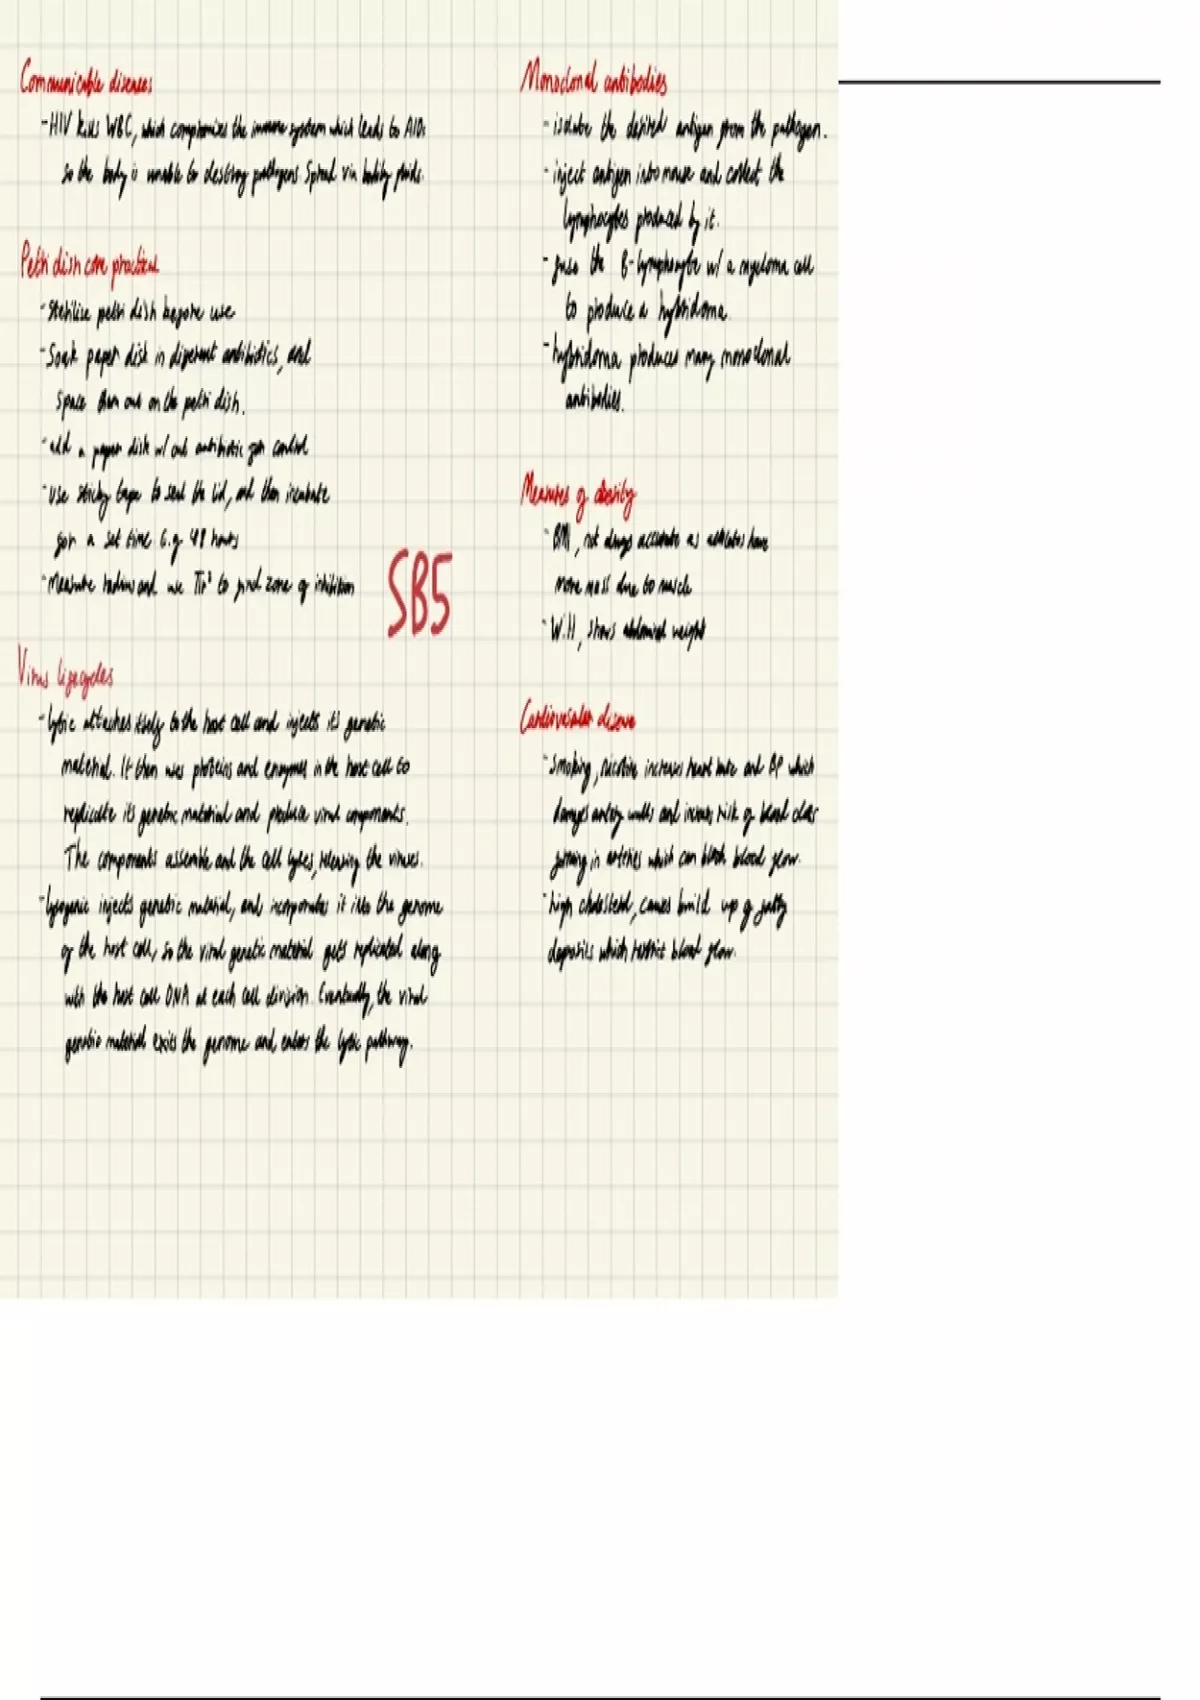 Communicable diseases
- HIV kills WBC, which compromises the immune system which leads to AIDs
so the body is unable to destroy pathogens. Spread via bodily fluids.
Petri dish core practical
- Sterilise petri dish before use
- Soak paper disk in different antibiotics, and
space them out on the petri dish.
- add a paper disk w/out antibiotic for control
- use sticky tape to seal the lid, and then incubate
for a set time e.g 48 hours
- Measure radius and use πr² to find zone of inhibition
SB5
Virus lifecycles
- lytic attaches itself to the host cell and injects it's genetic
material. It then uses proteins and enzymes in the host cell to
replicate its genetic material and produce viral components.
The components assemble and the cell lyses, releasing the viruses.
- lysogenic injects genetic material, and incorporates it into the genome
of the host cell, so the viral genetic material gets replicated along
with the host cell DNA at each cell division. Eventually, the viral
genetic material exits the genome and enters the lytic pathway.
Monoclonal antibodies
- isolate the desired antigen from the pathogen.
- inject antigen into mouse and collect the
lymphocytes produced by it.
- fuse the B-lymphocyte w/ a myeloma cell
to produce a hybridoma.
- hybridoma produces many monoclonal
antibodies.
Measures of obesity
- BMI, not always accurate as athletes have
more mass due to muscle
- W:H, shows abdominal weight
Cardiovascular disease
- Smoking, nicotine increases heart rate and BP which
damages artery walls and increases risk of blood clots
forming in arteries which can block blood flow.
- high cholesterol, causes build up of fatty
deposits which restrict blood flow.